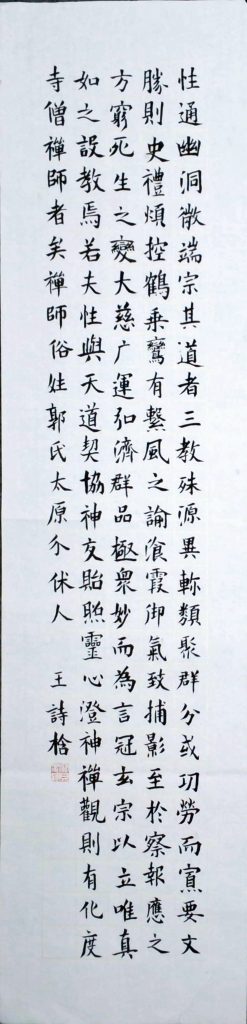 性通幽洞微端宗其道者三教殊源異軫類聚群分或㓛勞而寡要文
勝則史禮煩控鶴乘鸞有繫風之論飡霞御氣致捕影至於察報應之
方窮死生之變大慈广運弘濟群品極衆妙而為言冠玄宗以立唯真
如之設教焉若夫性與天道契協神交貽照靈心澄神禪觀則有化度
寺僧禪師者矣禪師俗姓郭氏太原介休人
王詩